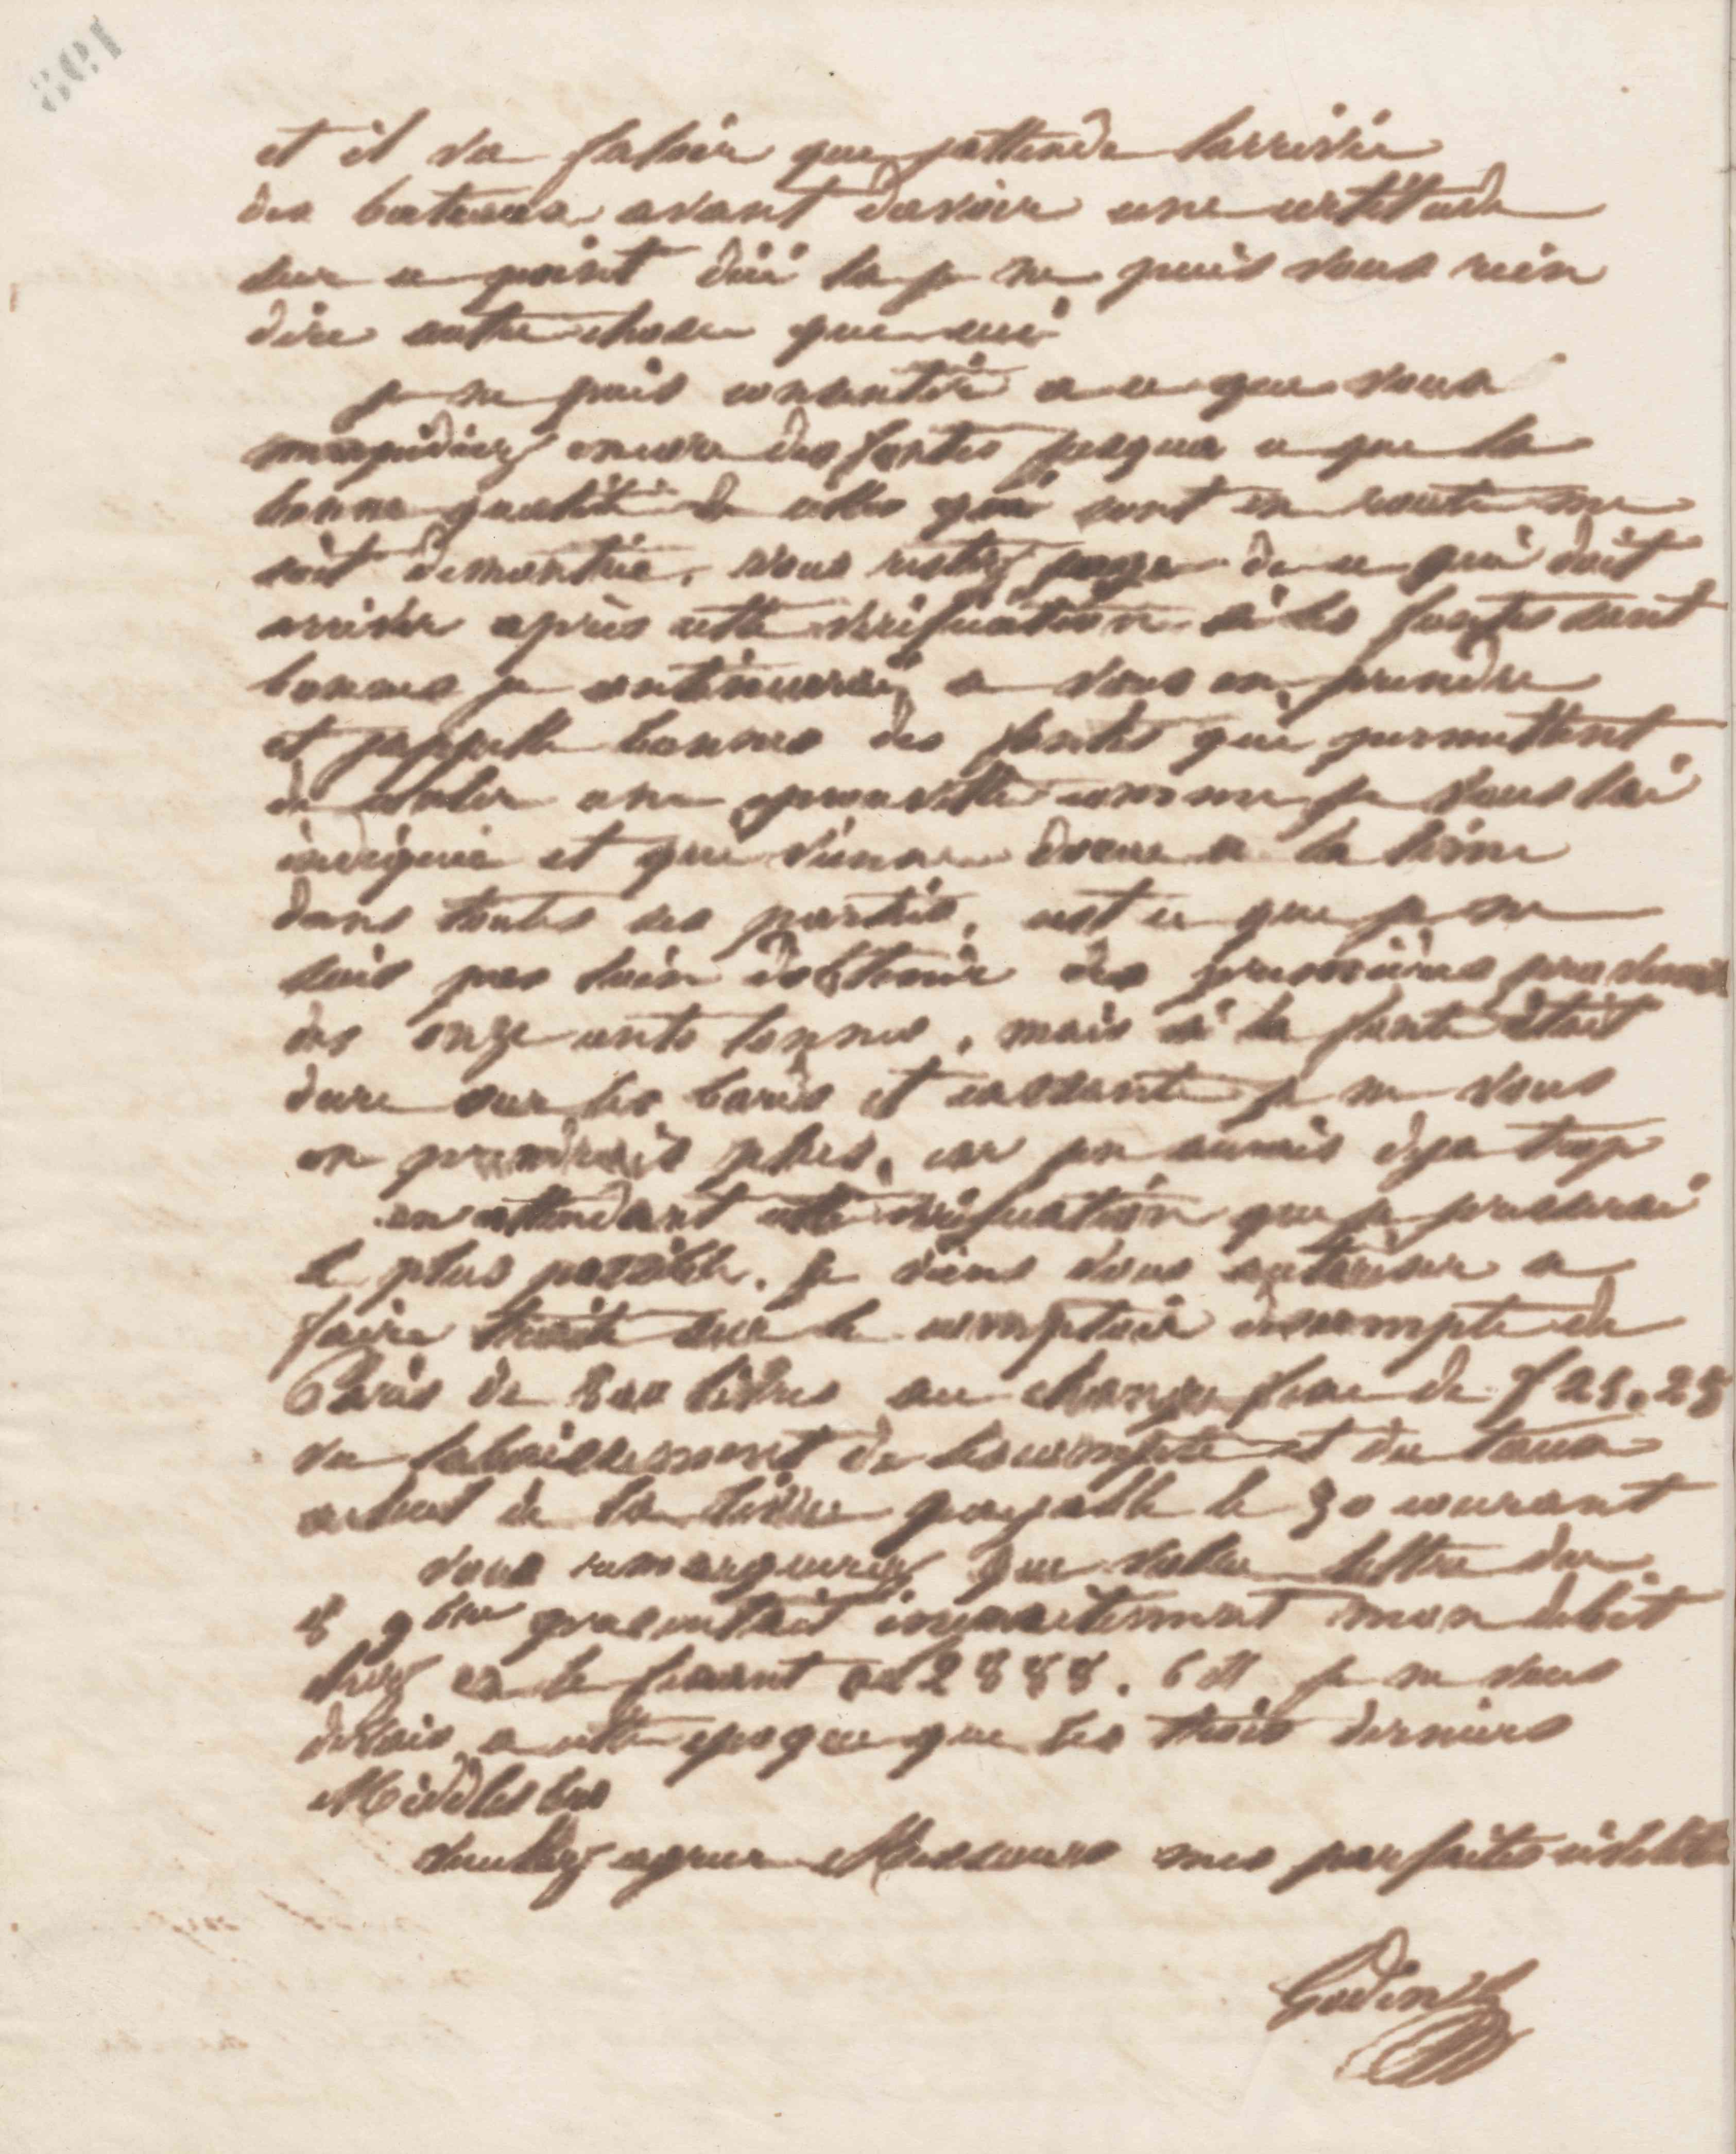 et il va faloir que jattende larrivée
des bateaux avant davoir une certitude
sur ce point dici la je ne puis vous rien
dire autre chose que ceci
je ne puis consentir a ce que vous
mexpediez encore des fontes jusqua ce que la
bonne qualité de celles qui sont en route me
soit demontrée. vous restez juge de ce qui doit
arriver après cette vérification si les fontes sont
bonnes je continuerai a vous en prendre
et jappelle bonnes des fontes qui permettent
de couler une eprouvette comme je vous lai
indiquée et qui vienne douce a la lime
dans toutes ses parties, cest ce que je ne
suis pas loin dobtenir des premières provenant
des onze cents tonnes, mais si la fonte était
dure sur les bords et cassante je ne vous
en prendrais plus, car jen aurais deja trop
en attendant cette vérification que je presserai
le plus possible. je viens vous autoriser a
faire traite sur le comptoir descompte de
Paris de 800 livres au change fixe de f 25.25
vu labaissement de lescompte et du taux
actuel de la livre payable le 30 courant
vous remarquerez que votre lettre du
8 9bre presentait inexactement mon debit
chez en le fixant a 2888. 6 11 je ne vous
devais a cette epoque que les trois derniers
Middlesbro
veuillez agreer Messieurs mes parfaites civilités
Godin